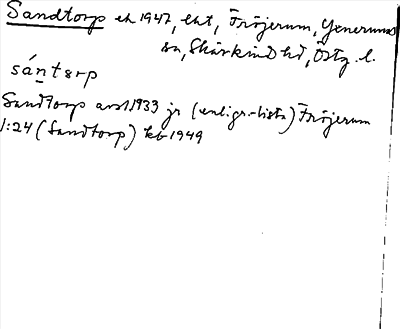 Sandtorp ek 1947, lht, Fröjerum, Yxnerums
sn, Skärkind hd, Östg. l.
sántɘrp
Sandtorp avst. 1933 jr (enl. gr.-lista) Fröjerum
1:24 (Sandtorp) kb 1949